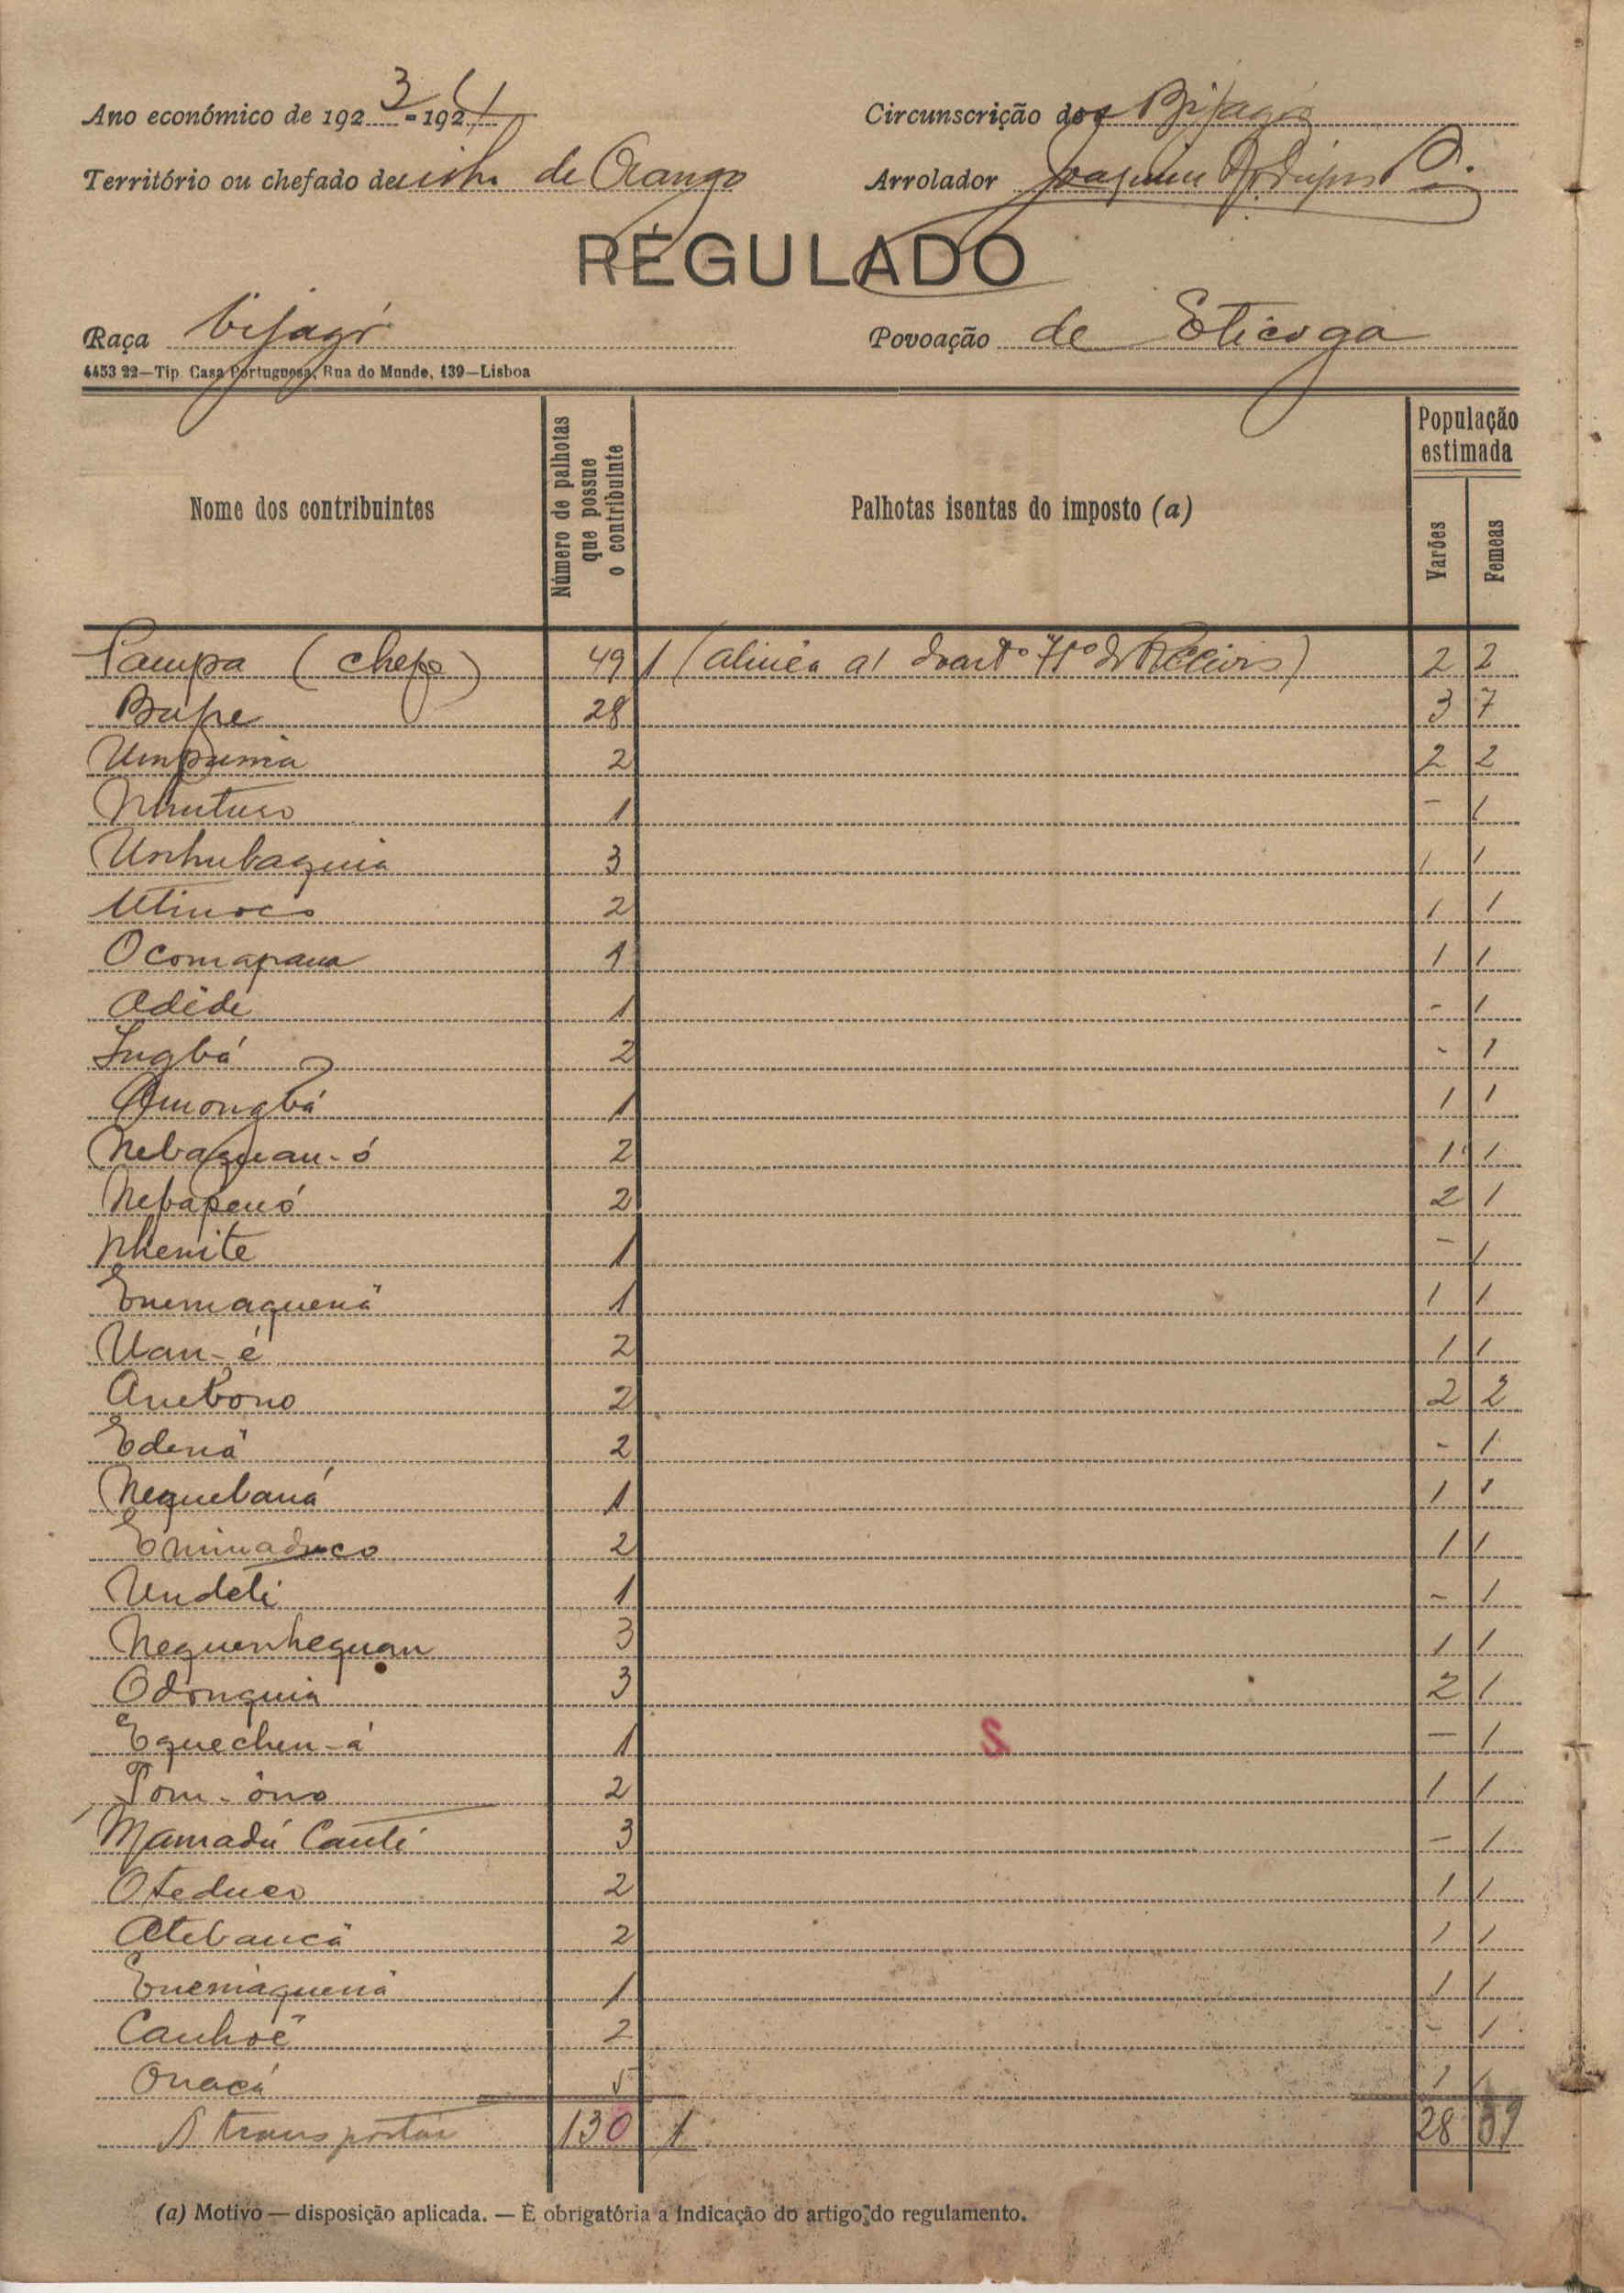 Ano económico de 1923-1924
Circunscrição dos Bijagós
Território ou chefado de ilha de Orango
Arrolador Joaquim
REGULADO
Raça bijagó
Povoação de Eticoga
4453 22—Tip. Casa Portuguesa, Rua do Mundo, 139—Lisboa
Nome dos contribuintes
Número de palhotas que possue o contribuinte
Palhotas isentas do imposto (a)
População estimada
Varões
Femeas
Pampa (chefe) 49 1 (alinéa a) do art.º 71º do 2 2
Bupe 28 3 7
Umpunia 2 2 2
Nhutuco 1 - 1
Unhubaquia 3 1 1
Utinoco 2 1 1
Ocomapana 1 1 1
Adêde 1 - 1
Ingbá 2 - 1
Amongbá 1 1 1
Nebaquan-ó 2 1 1
Nebapenó 2 2 1
Nhenite 1 - 1
Enemaquenâ 1 1 1
Uan-é 2 1 1
Anebono 2 2 2
Edenâ 2 - 1
Nequebaná 1 1 1
Eminaduco 2 1 1
Undeti 1 - 1
Nequenhequan 3 1 1
Odonquia 3 2 1
Equechen-á 1 — 1
S
Pom-ôno 2 1 1
Mamadú Canté 3 - 1
Oteduco 2 1 1
Atebancâ 2 1 1
Enemaquenâ 1 1 1
Canhoê 2 - 1
Onacá 5 1 1
A transportar 130 1 28 39
(a) Motivo — disposição aplicada. — É obrigatória a indicação do artigo do regulamento.